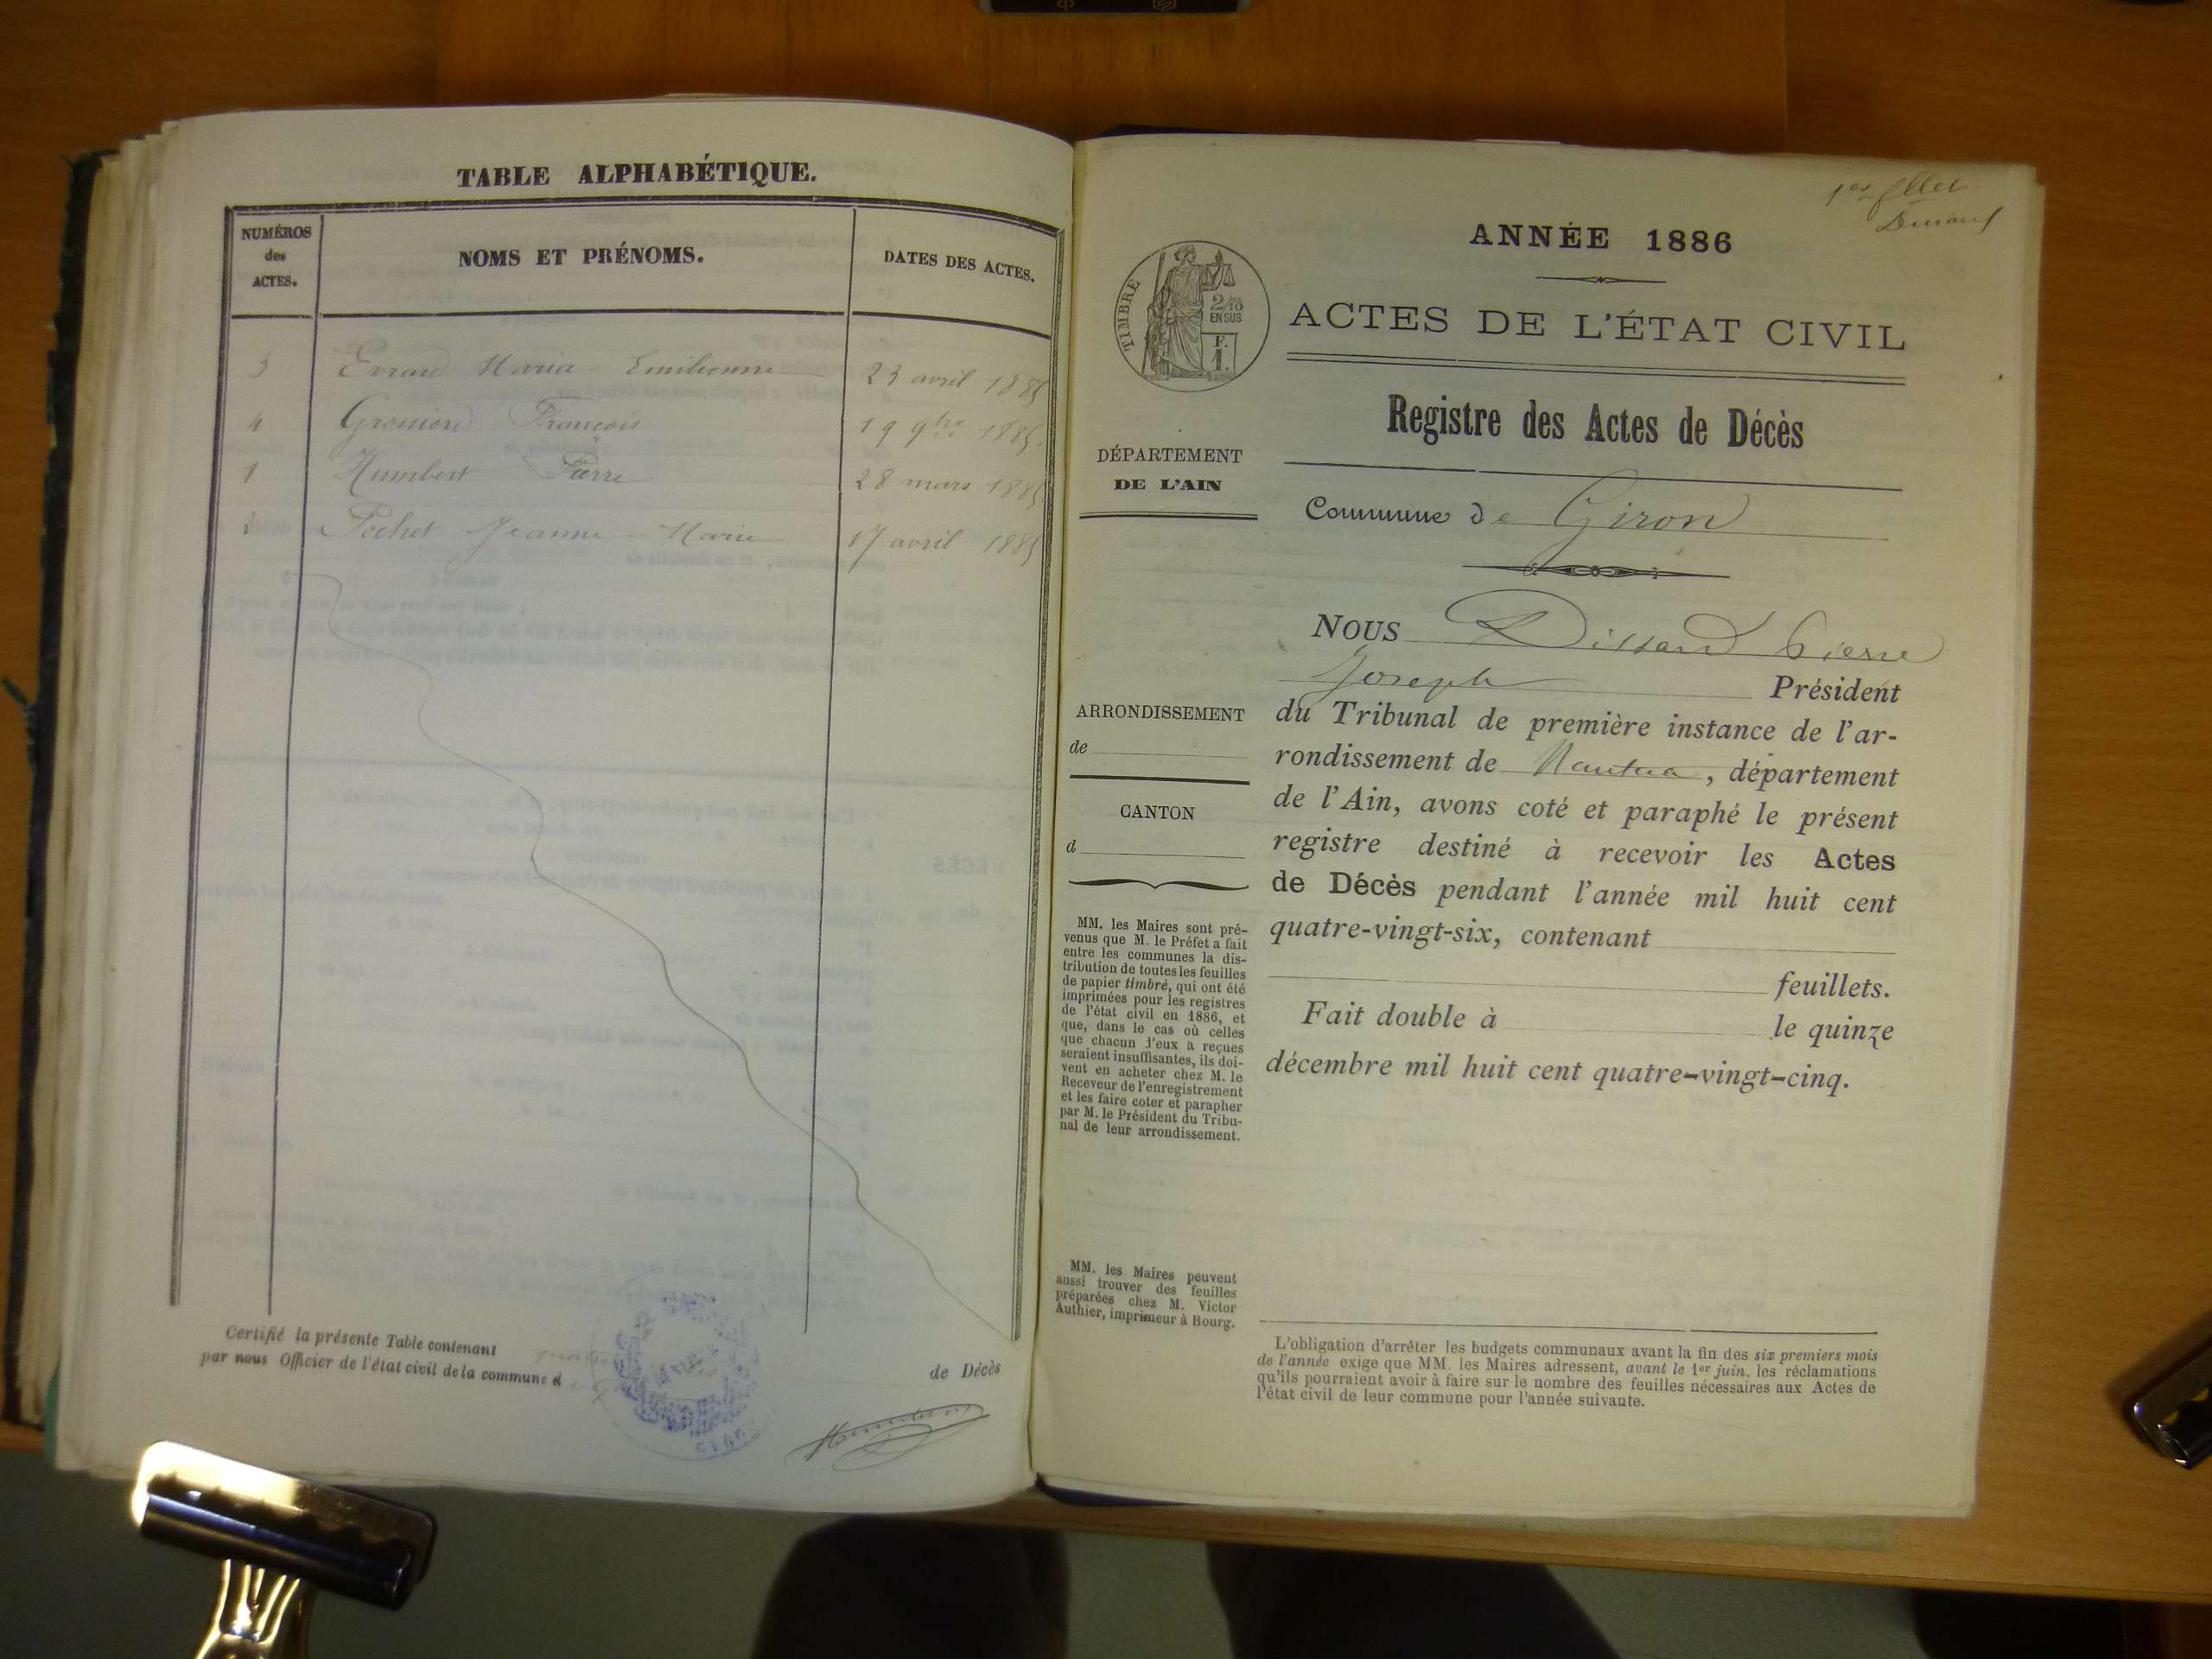 TABLE ALPHABÉTIQUE.
NUMÉROS
des
ACTES.
NOMS ET PRÉNOMS.
DATES DES ACTES.
3 Evrard Maria - Emilienne 23 avril 1885
4 Grossiord François 19 9bre 1885.
1 Humbert Pierre 28 mars 1885
2 Pochet Jeanne - Marie 17 avril 1885
Certifié la présente Table contenant quatre
de Décès
par nous Officier de l'état civil de la commune de
1er
ANNÉE 1886
TIMBRE
2/10
EN SUS
F.
1.
ACTES DE L'ÉTAT CIVIL
Registre des Actes de Décès
DÉPARTEMENT
DE L'AIN
Commune de Giron
NOUS Dissard Pierre
Joseph Président
du Tribunal de première instance de l'ar-
rondissement de Nantua, département
de l'Ain, avons coté et paraphé le présent
registre destiné à recevoir les Actes
de Décès pendant l'année mil huit cent
quatre-vingt-six, contenant
feuillets.
Fait double à le quinze
décembre mil huit cent quatre-vingt-cinq.
ARRONDISSEMENT
de
CANTON
d
MM. les Maires sont pré-
venus que M. le Préfet a fait
entre les communes la dis-
tribution de toutes les feuilles
de papier timbré, qui ont été
imprimées pour les registres
de l'état civil en 1886, et
que, dans le cas où celles
que chacun d'eux a reçues
seraient insuffisantes, ils doi-
vent en acheter chez M. le
Receveur de l'enregistrement
et les faire coter et parapher
par M. le Président du Tribu-
nal de leur arrondissement.
MM. les Maires peuvent
aussi trouver des feuilles
préparées chez M. Victor
Authier, imprimeur à Bourg.
L'obligation d'arrêter les budgets communaux avant la fin des six premiers mois
de l'année exige que MM. les Maires adressent, avant le 1er juin, les réclamations
qu'ils pourraient avoir à faire sur le nombre des feuilles nécessaires aux Actes de
l'état civil de leur commune pour l'année suivante.